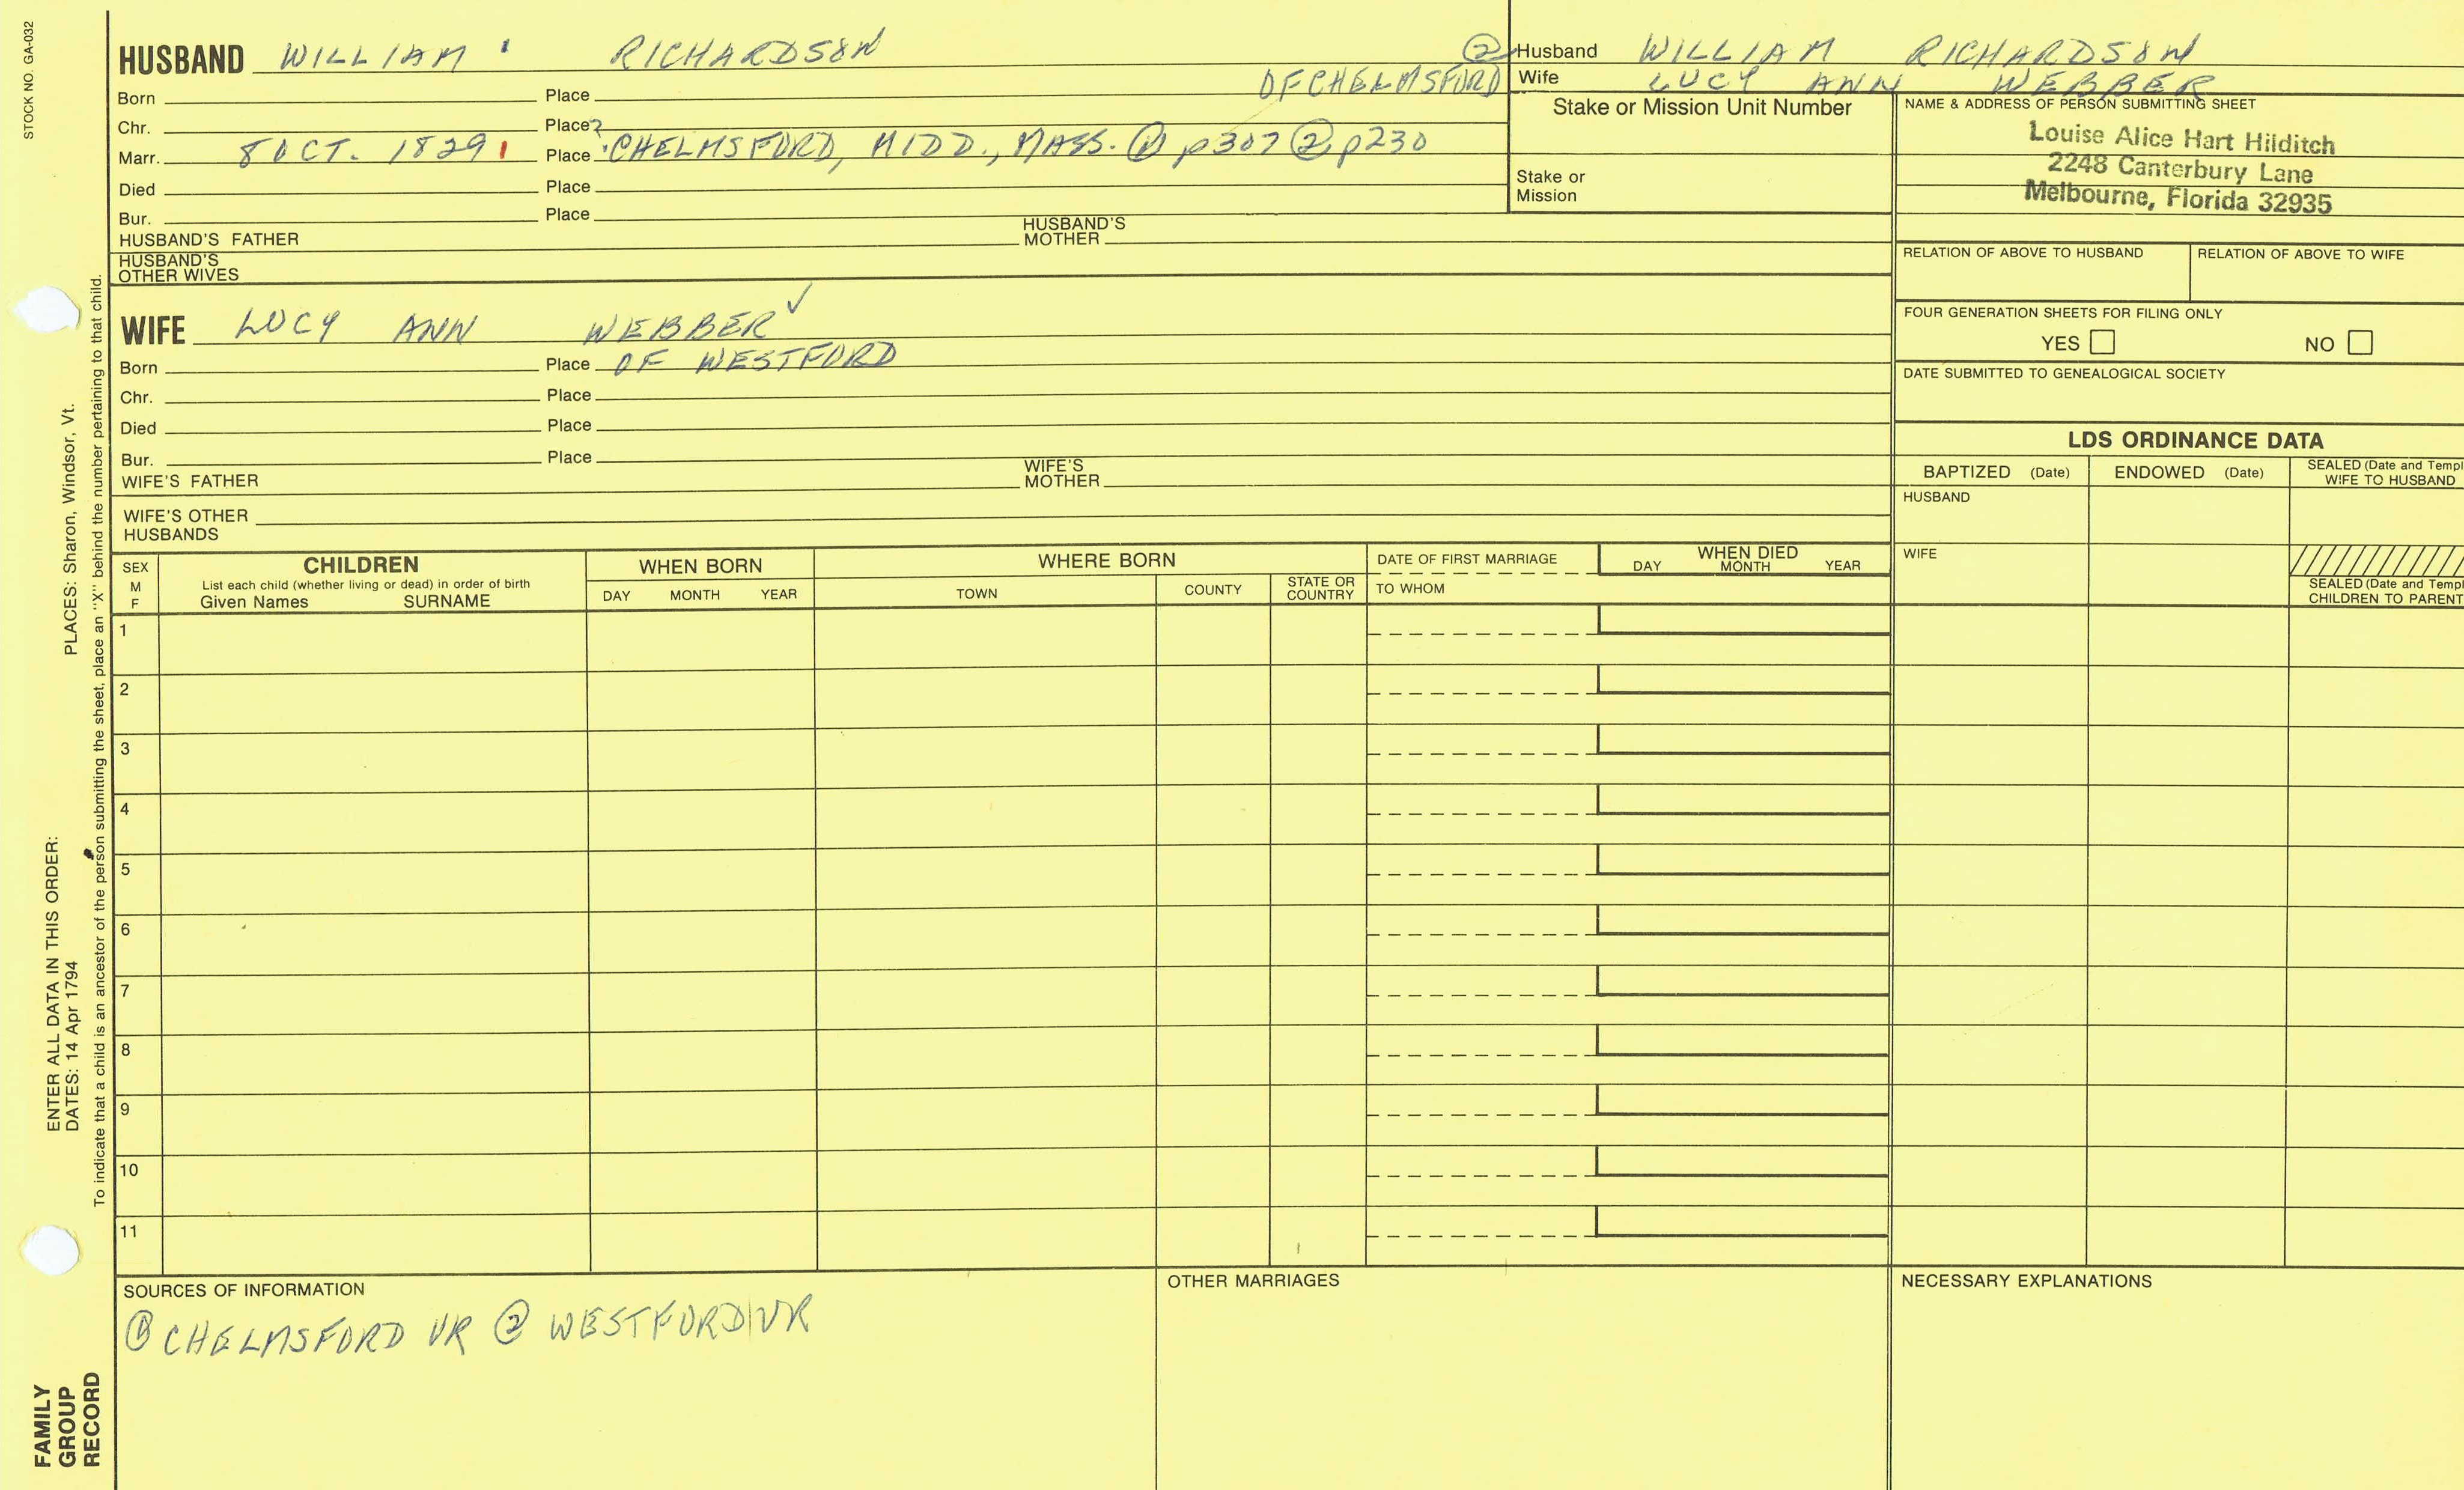 STOCK NO. GA-032
HUSBAND WILLIAM RICHARDSON
② OF CHELMSFORD
Born Place
Chr. Place?
Marr. 8 OCT. 1829 Place CHELMSFORD, MIDD., MASS. ① p307 ② p230
Died Place
Bur. Place
HUSBAND'S FATHER HUSBAND'S MOTHER
HUSBAND'S OTHER WIVES
Husband WILLIAM RICHARDSON
Wife LUCY ANN WEBBER
Stake or Mission Unit Number
Stake or
Mission
NAME & ADDRESS OF PERSON SUBMITTING SHEET
Louise Alice Hart Hilditch
2248 Canterbury Lane
Melbourne, Florida 32935
RELATION OF ABOVE TO HUSBAND RELATION OF ABOVE TO WIFE
FOUR GENERATION SHEETS FOR FILING ONLY
YES NO
DATE SUBMITTED TO GENEALOGICAL SOCIETY
WIFE LUCY ANN WEBBER ✓
Born Place OF WESTFORD
Chr. Place
Died Place
Bur. Place
WIFE'S FATHER WIFE'S MOTHER
WIFE'S OTHER
HUSBANDS
LDS ORDINANCE DATA
BAPTIZED (Date) ENDOWED (Date) SEALED (Date and Templ
WIFE TO HUSBAND
HUSBAND
WIFE
SEALED (Date and Templ
CHILDREN TO PARENT
SEX
M
F
CHILDREN
List each child (whether living or dead) in order of birth
Given Names SURNAME
WHEN BORN
DAY MONTH YEAR
WHERE BORN
TOWN COUNTY STATE OR COUNTRY
DATE OF FIRST MARRIAGE
TO WHOM
WHEN DIED
DAY MONTH YEAR
1
2
3
4
5
6
7
8
9
10
11
SOURCES OF INFORMATION
① CHELMSFORD VR ② WESTFORD VR
OTHER MARRIAGES
NECESSARY EXPLANATIONS
ENTER ALL DATA IN THIS ORDER:
DATES: 14 Apr 1794 PLACES: Sharon, Windsor, Vt.
To indicate that a child is an ancestor of the person submitting the sheet, place an "X" behind the number pertaining to that child.
FAMILY
GROUP
RECORD